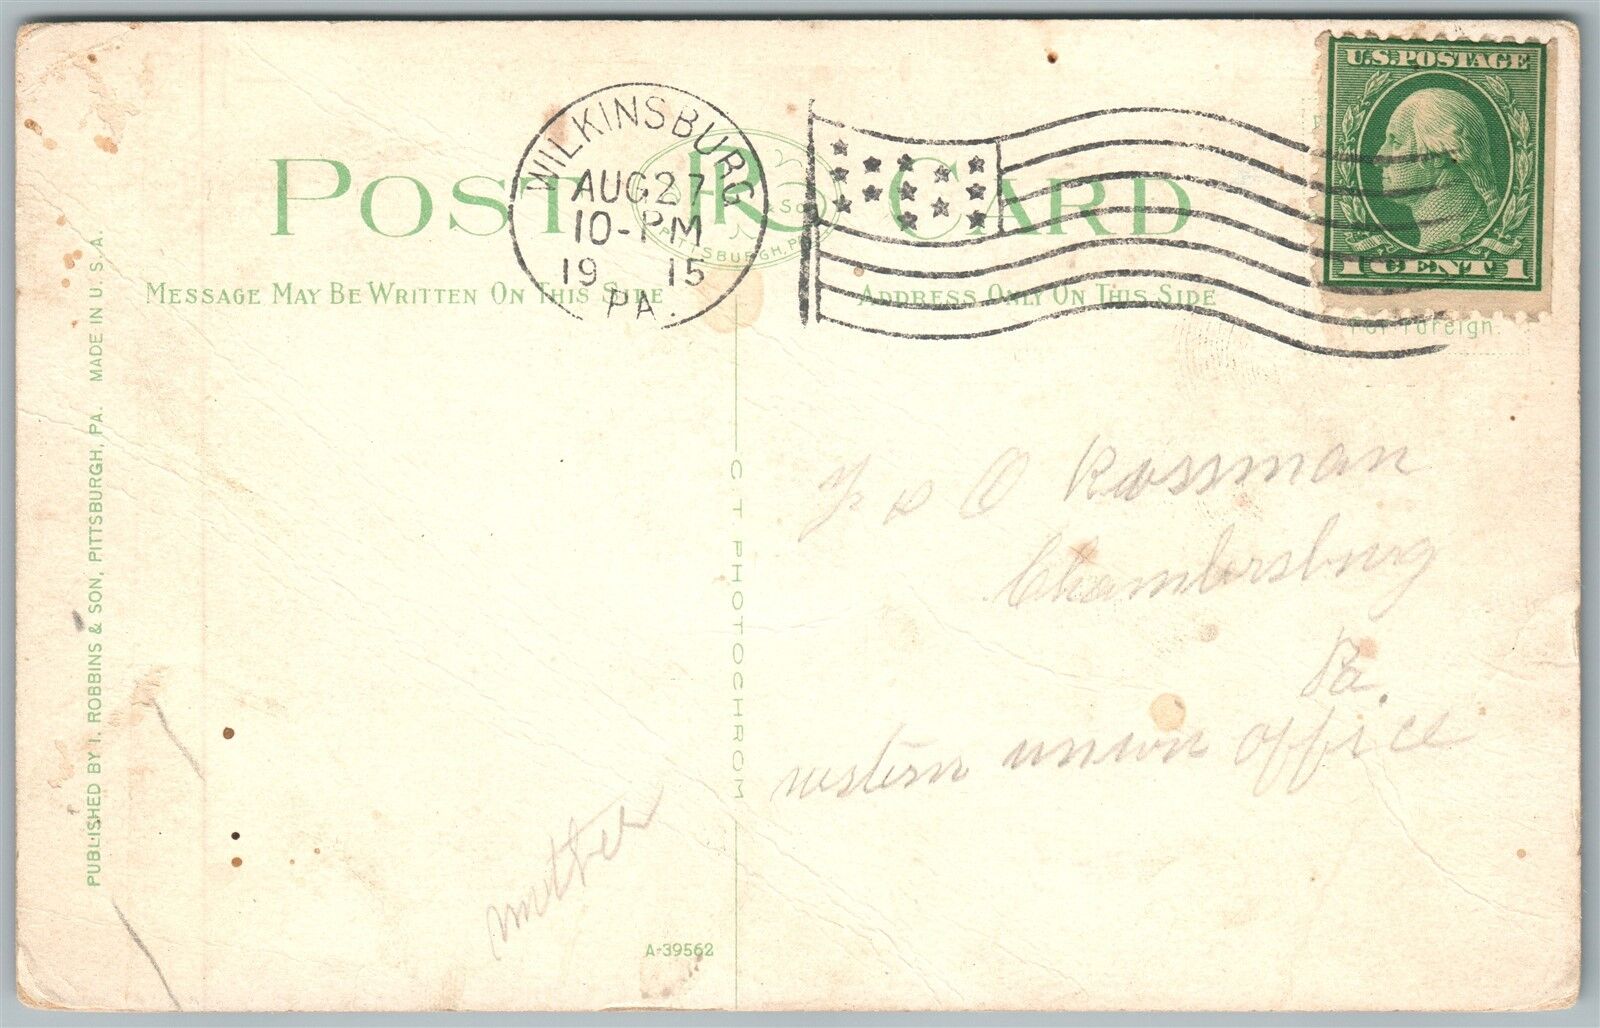 POST CARD
R & SON
PITTSBURGH, PA.
WILKINSBURG
AUG 27
10-PM
19 15
PA.
U.S. POSTAGE
1 CENT 1
MESSAGE MAY BE WRITTEN ON THIS SIDE
ADDRESS ONLY ON THIS SIDE
For Foreign.
O Rossman
Chambersburg
Pa.
western union office
mother
C T PHOTOCHROM
A-39562
PUBLISHED BY I. ROBBINS & SON, PITTSBURGH, PA. MADE IN U.S.A.